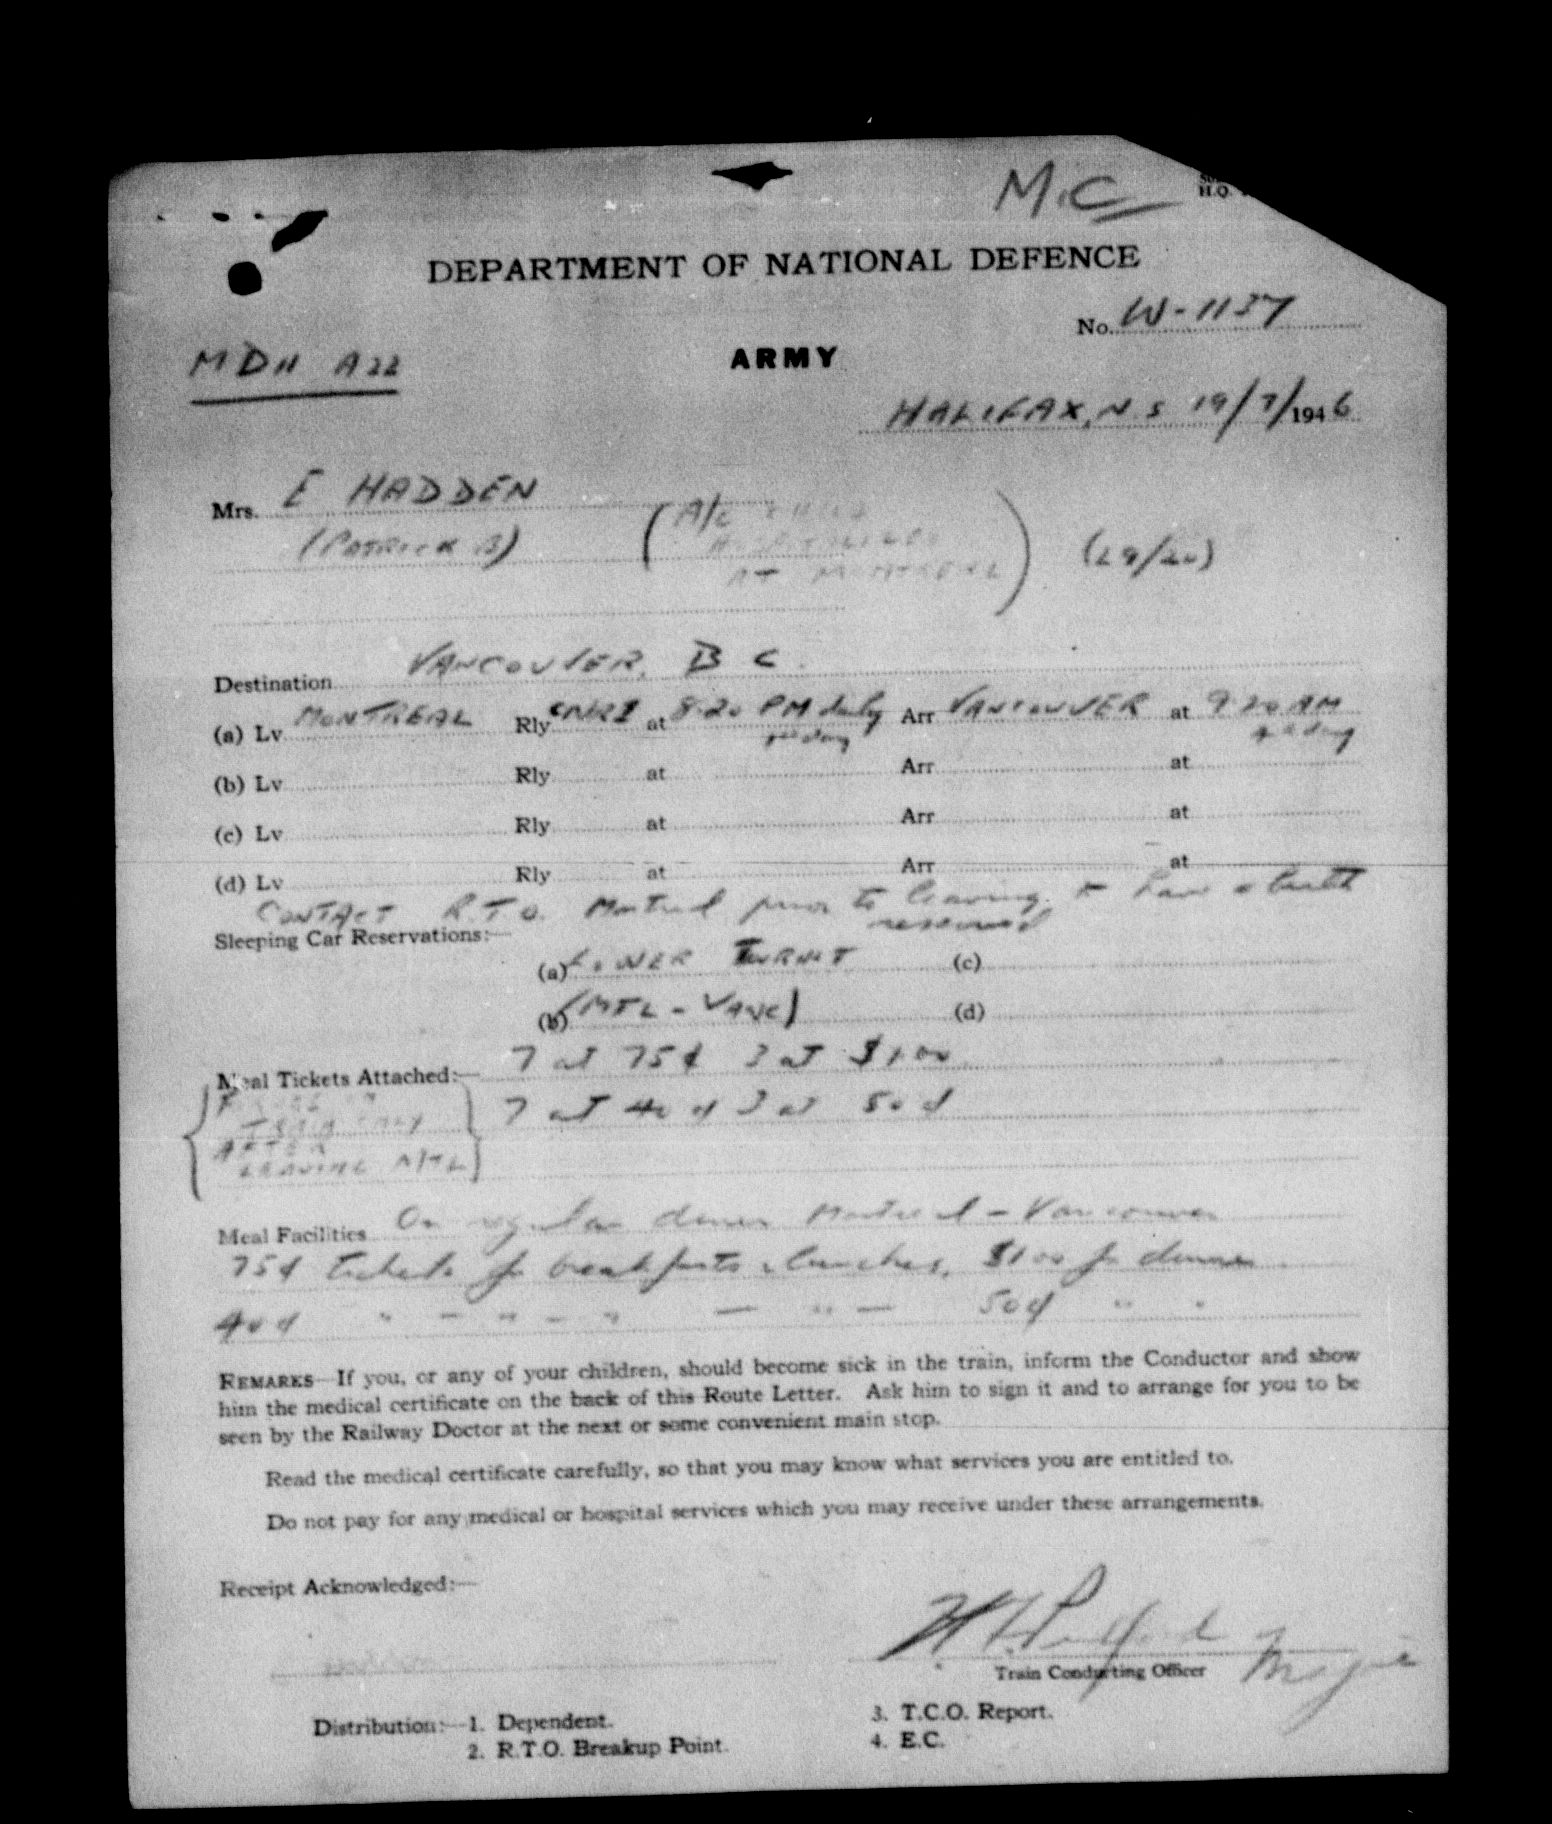 M.C.
H.Q.
DEPARTMENT OF NATIONAL DEFENCE
No. W-1137
MD11 A22
ARMY
HALIFAX, N.S 19/7/1946
Mrs. E HADDEN
(PATRICK B) (A/C CHILD
AT MONTREAL)
Destination VANCOUVER, B C.
(a) Lv MONTREAL Rly CNR at 8.20 PM daily Arr VANCOUVER at 9.20 AM
day day
(b) Lv Rly at Arr at
(c) Lv Rly at Arr at
(d) Lv Rly at Arr at
CONTACT R.T.O. Montreal prior to leaving to have berth
reserved
Sleeping Car Reservations:—
(a) LOWER (c)
(b) (MTL - VANC) (d)
Meal Tickets Attached:— 7 at 75¢ 3 at $1.00
7 at 40¢ 3 at 50¢
TRAIN ONLY
AFTER
LEAVING MTL
Meal Facilities On regular diner Montreal - Vancouver
75¢ tickets for breakfasts & lunches, $1.00 for dinner
40¢ " — " — " — " — 50¢ " "
REMARKS—If you, or any of your children, should become sick in the train, inform the Conductor and show
him the medical certificate on the back of this Route Letter. Ask him to sign it and to arrange for you to be
seen by the Railway Doctor at the next or some convenient main stop.
Read the medical certificate carefully, so that you may know what services you are entitled to.
Do not pay for any medical or hospital services which you may receive under these arrangements.
Receipt Acknowledged:—
Train Conducting Officer Major
Distribution:—1. Dependent.
2. R.T.O. Breakup Point.
3. T.C.O. Report.
4. E.C.